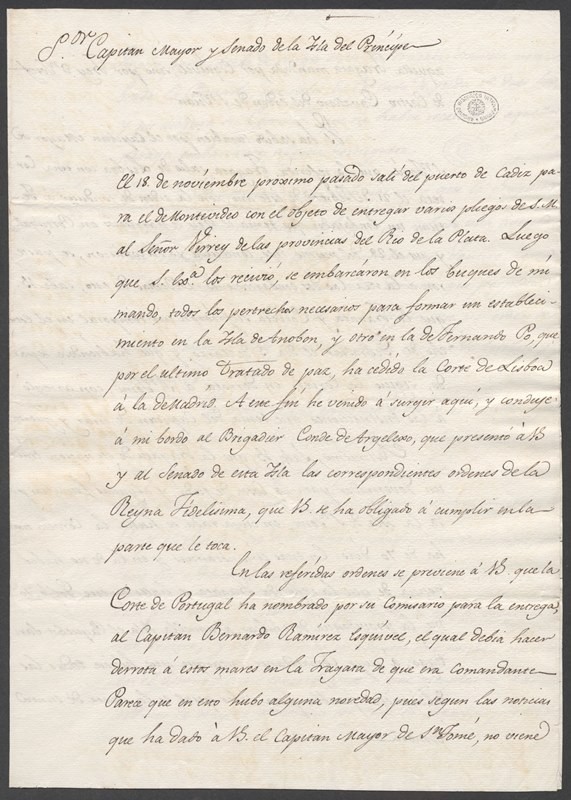 S.or Capitan Mayor y Senado de la Isla del Príncipe
El 18. de noviembre proximo pasado salí del puerto de Cadiz pa-
ra el de Montevideo con el objeto de entregar varios pliegos de S. M.
al Señor Virrey de las provincias del Rio de la Plata. Luego
que, S. Exª. los recivió, se embarcaron en los buques de mi
mando, todos los pertrechos necesarios para formar un estableci-
miento en la Isla de Anobon, y otro en la de Fernando Pó, que
por el ultimo Tratado de paz, ha cedido la Corte de Lisboa
á la de Madrid. A este fin he venido á surgir aquí, y conduje
á mi bordo al Brigadier Conde de Argelexo, que presentó à VS
y al Senado de esta Isla las correspondientes ordenes de la
Reyna Fidelisima, que VS. se ha obligado á cumplir en la
parte que le toca.
En las referidas ordenes se previene á VS. que la
Corte de Portugal ha nombrado por su Comisario para la entrega,
al Capitan Bernardo Ramirez Esquivel, el qual debia hacer
derrota á estos mares en la Fragata de que era comandante
Parece que en esto hubo alguna novedad, pues segun las noticias
que ha dado à VS. el Capitan Mayor de Sn. Tomé, no viene